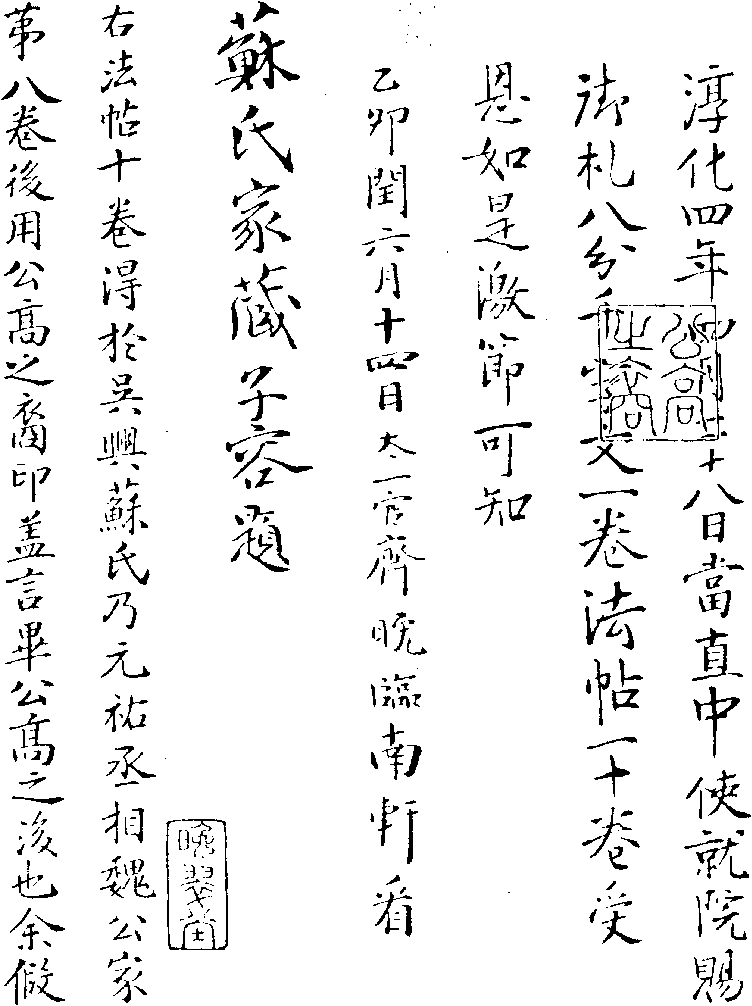 淳化四年四月二十八日當直中使就院賜
御札八分千字文一卷法帖一十卷受
恩如是激節可知
乙卯閏六月十四日太一宫齊晚臨南軒看
蘇氏家藏子容題
右法帖十卷得於吳興蘇氏乃元祐丞相魏公家
苐八卷後用公髙之裔印盖言畢公髙之後也余倣
公髙之裔
晚翠堂